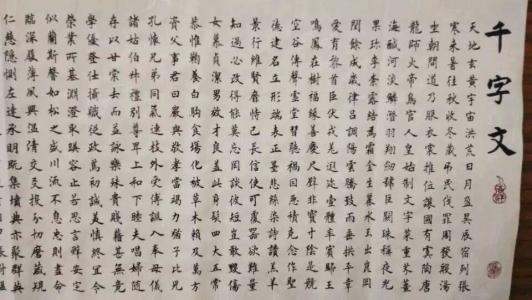 千字文
天地玄黃宇宙洪荒日月盈昃辰宿列張
寒來暑往秋收冬藏弔民伐罪周發殷湯
坐朝問道乃服衣裳推位讓國有虞陶唐
龍師火帝鳥官人皇始制文字菜重芥薑
海鹹河淡鱗潛羽翔劍號巨闕珠稱夜光
果珍李柰露結為霜金生麗水玉出崑岡
閏餘成歲律呂調陽雲騰致雨垂拱平章
愛育黎首臣伏戎羌遐邇壹體率賓歸王
鳴鳳在樹福緣善慶尺璧非寶寸陰是競
空谷傳聲虛堂習聽禍因惡積克念作聖
德建名立形端表正墨悲絲染詩讚羔羊
景行維賢罄恃己長信使可覆器欲難量
知過必改得能莫忘罔談彼短豈敢毀傷
女慕貞潔男效才良蓋此身髮四大五常
恭惟鞠養白駒食場化被草木賴及萬方
資父事君曰嚴與敬孝當竭力猶子比兒
孔懷兄弟同氣連枝外受傅訓入奉母儀
諸姑伯叔禮別尊卑上和下睦夫唱婦隨
存以甘棠去而益詠樂殊貴賤籍甚無竟
學優登仕攝職從政篤初誠美慎終宜令
榮業所基淵澄取映容止若思言辭安定
似蘭斯馨如松之盛川流不息忠則盡命
臨深履薄夙興溫凊交友投分切磨箴規
仁慈隱惻左達承明既集墳典亦聚群英